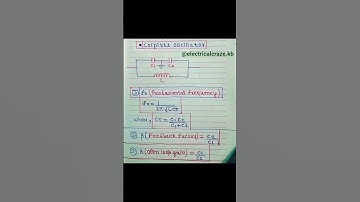 • Colpitts Oscillator
@electricalcraze.kb
C₁ C₂
L
① fo (Fundamental frequency)
fo = 1 / 2π√LCT
where, CT = C₁C₂ / C₁+C₂
② β (Feedback factor) = C₂ / C₁
③ A (Open loop gain) = C₁ / C₂